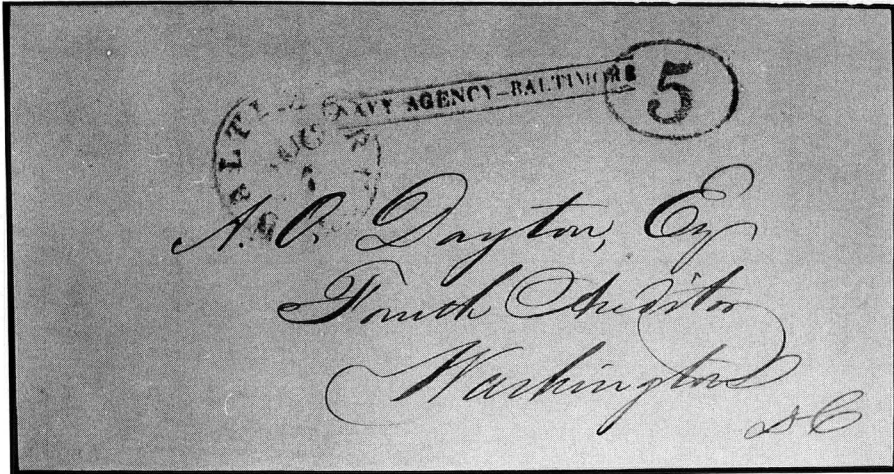 NAVY AGENCY—BALTIMORE
5
BALTI
AUG
7
A. O. Dayton, Esq
Fourth Auditor
Washington
D C